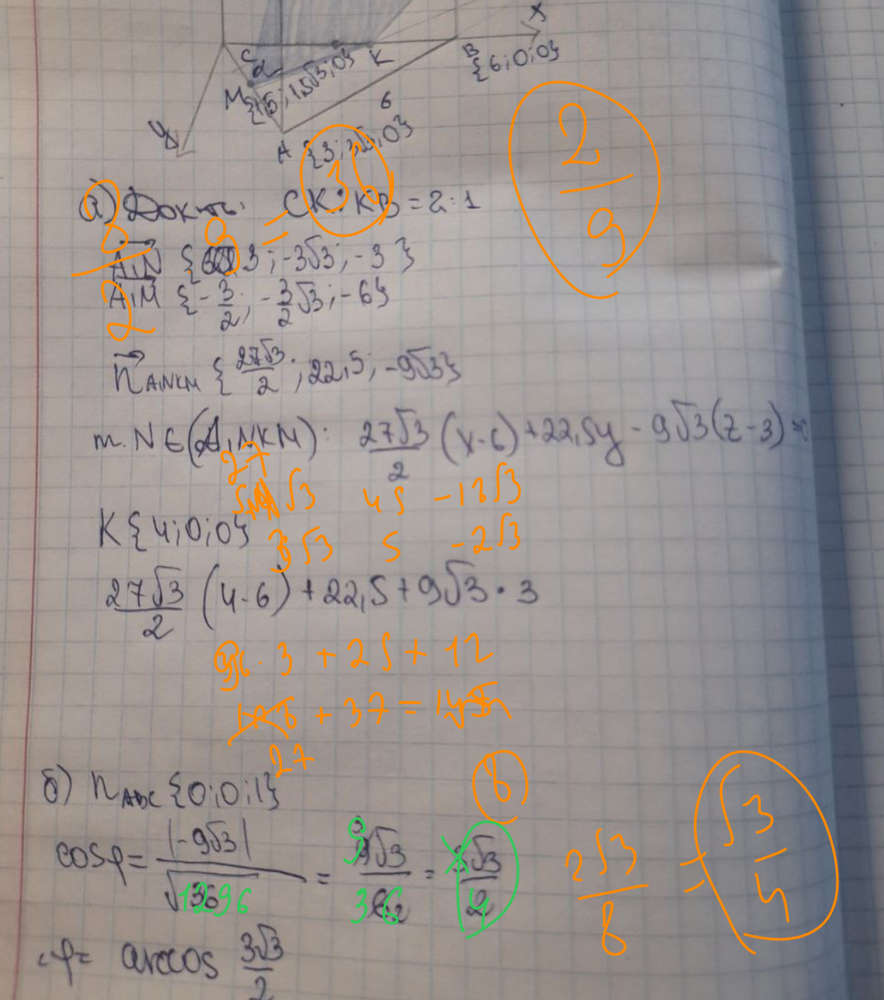 X
C
α
K
B
{6;0;0}
M
{1,5;1,5√3;0}
6
A {3;3√3;0}
2/9
а) Док-ть: CK:KB=2:1
A₁N { 3;-3√3;-3}
A₁M {-3/2;-3/2√3;-6}
n⃗ A₁NKM {27√3/2;22,5;-9√3}
т. N∈(A₁NKM): 27√3/2 (x-6)+22,5y-9√3(z-3)=0
27
√3 45 -18√3
K{4;0;0}
3√3 5 -2√3
27√3/2 (4-6)+22,5+9√3·3
3+25+12
+37=
27
б) n ABC {0;0;1}
8
cosφ=|-9√3|/√1296 = 9√3/36 = √3/4
2√3/8 = √3/4
φ= arccos 3√3/2